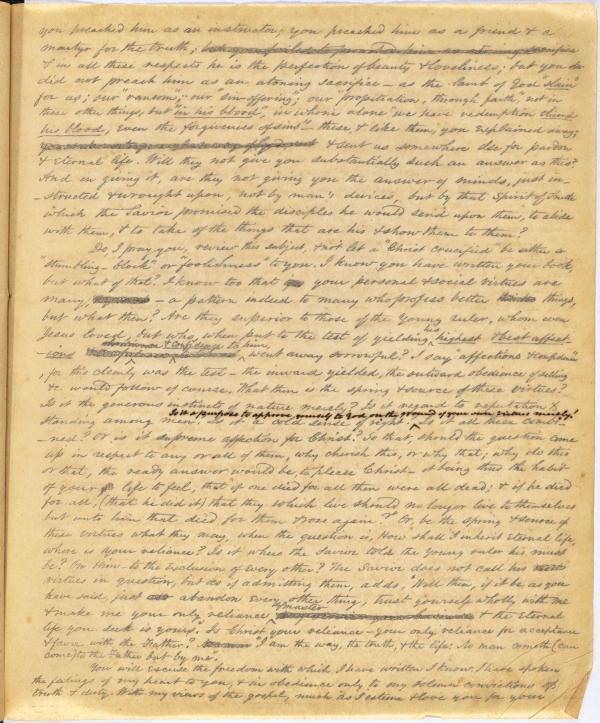 you preached him as an instructor; you preached him as a friend & a
martyr for the truth;
& in all these respects he is the perfection of beauty & loveliness; but you
did not preach him as an atoning sacrifice - as the lamb of God "slain"
for us; our "ransom"; our "sin-offering"; our "propitiation, through faith, not in
these other things, but in his blood, in whom alone we have redemption through
his blood, even the forgiveness of sins" - these & like them, you explained away;
& sent us somewhere else for pardon
& eternal life. Will they not give you substantially such an answer as this?
And in giving it, are they not giving you the answer of minds, just in-
-structed & wrought upon, not by man's devices, but by that Spirit of Truth
which the Savior promised the disciples he would send upon them, to abide
with them, & to take of the things that are his & show them to them?
Do, I pray you, review this subject, & not let a "Christ crucified" be either a
"stumbling-block" or "foolishness" to you. I know you have written your book,
but what of that? I know too that your personal & social virtues are
many, - a pattern indeed to many who profess better things,
but what then? Are they superior to those of the young ruler, whom even
Jesus loved, but who, when put to the test of yielding his highest & best affect-
-ions & confidence to him, went away sorrowful? I say "affections & confidence"
, for this clearly was the test - the inward yielded, the outward obedience of selling
&c. would follow of course. What then is the spring & source of these virtues?
Is it the generous instincts of nature merely? Is it regard to reputation &
standing among men? Is it a cold sense of right? Is it a purpose to approve yourself to God on the ground of your own virtues merely? Is it all these combi-
-nest? Or is it supreme affection for Christ? So that, should the question come
up in respect to any or all of them, why cherish this, or why that; why do this
or that, the ready answer would be, to please Christ - it being thus the habit
of your life to feel, that "if one died for all then were all dead; & if he died
for all, (that he did it) that they which live should no longer live to themselves
but unto him that died for them & rose again?" Or, be the spring & source of
these virtues what they may, when the question is, How shall I inherit eternal life,
where is your reliance? Is it where the Savior told the young ruler his must
be? On Him - to the exclusion of every other? The Savior does not call his
virtues in question, but as if admitting them, adds, "Well then, if it be as you
have said, just abandon every other thing, trust yourself wholly with me
& make me your only reliance & master & the eternal
life you seek is yours." Is Christ your reliance - your only reliance for acceptance
& favor with the Father? I am the way, the truth, & the life: No man cometh (can
come) to the Father but by me.
You will excuse the freedom with which I have written. I know I have spoken
the feelings of my heart to you, & in obedience only to my solemn convictions of
truth & duty. With my views of the gospel, much as I esteem & love you for your